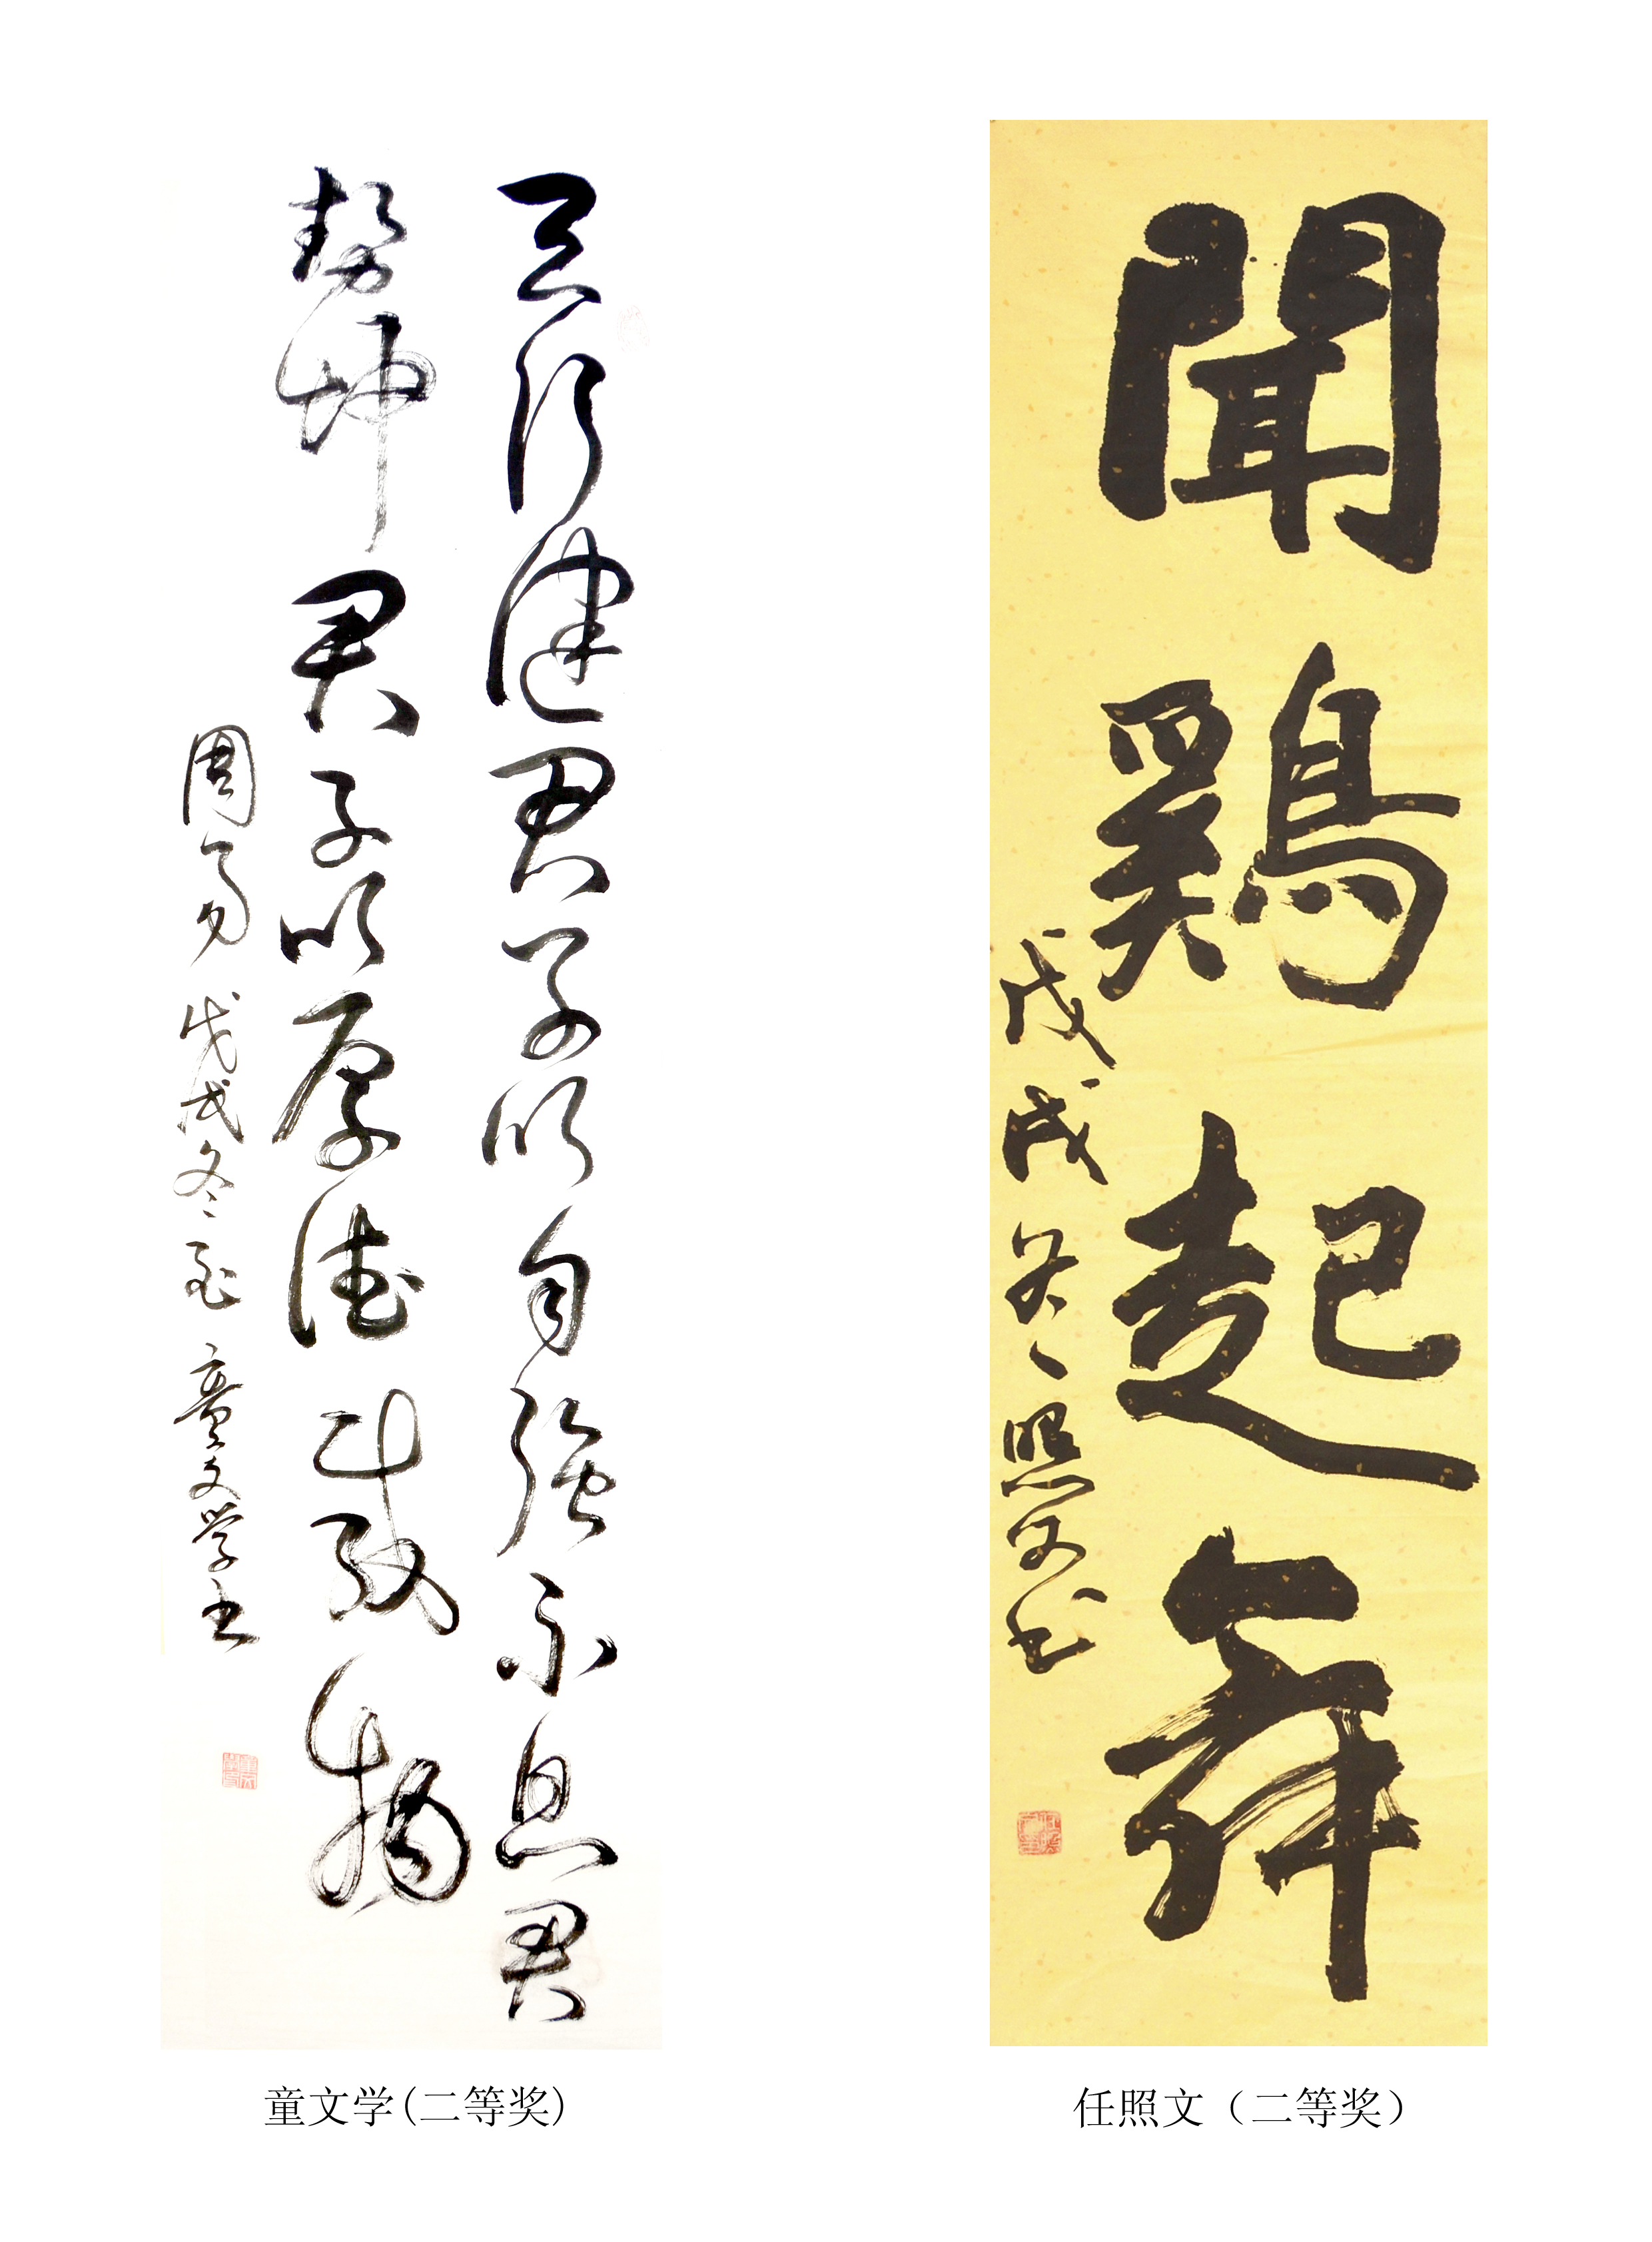 天行健君子以自强不息君
势坤君子以厚德载物
周易 戊戌冬至 童文学书
童文学(二等奖)
聞鷄起舞
戊戌冬照文书
任照文（二等奖）